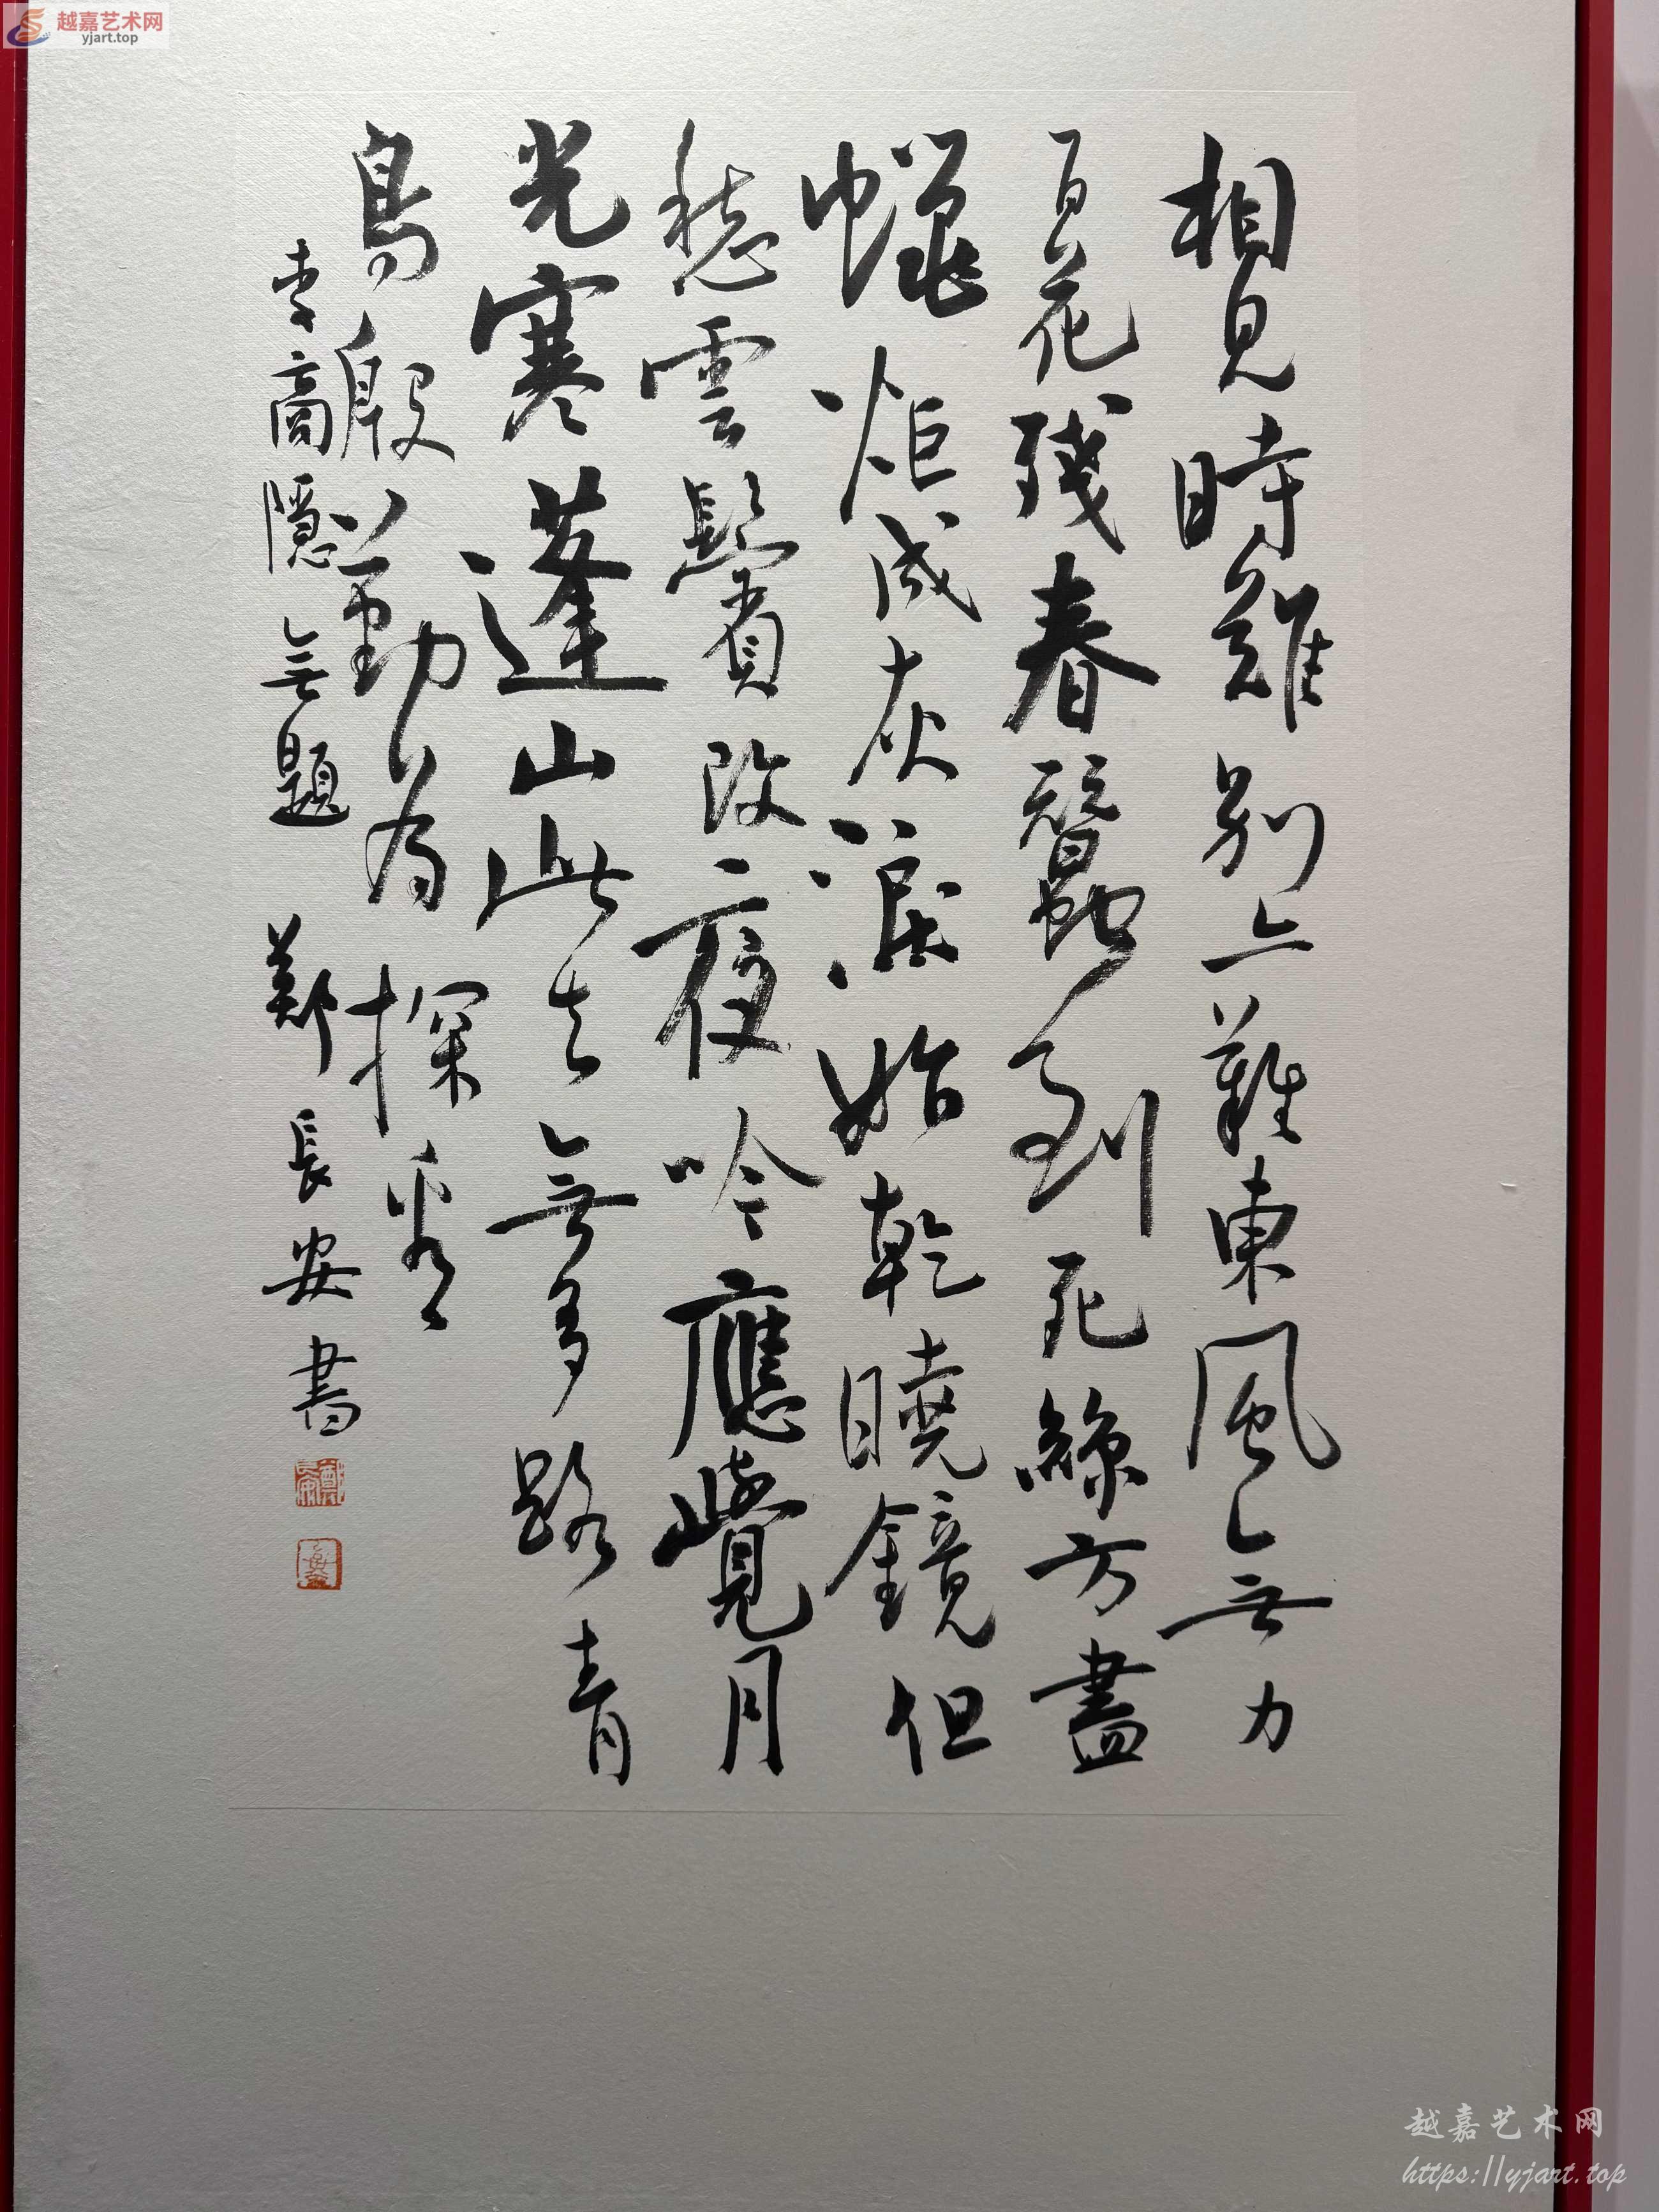 越嘉艺术网
yjart.top
相見時難別亦難東風無力
百花殘春蠶到死絲方盡
蠟炬成灰淚始乾曉鏡但
愁雲鬢改夜吟應覺月
光寒蓬山此去無多路青
鳥殷勤為探看
李商隱無題 鄭長安書
越嘉艺术网
https://yjart.top